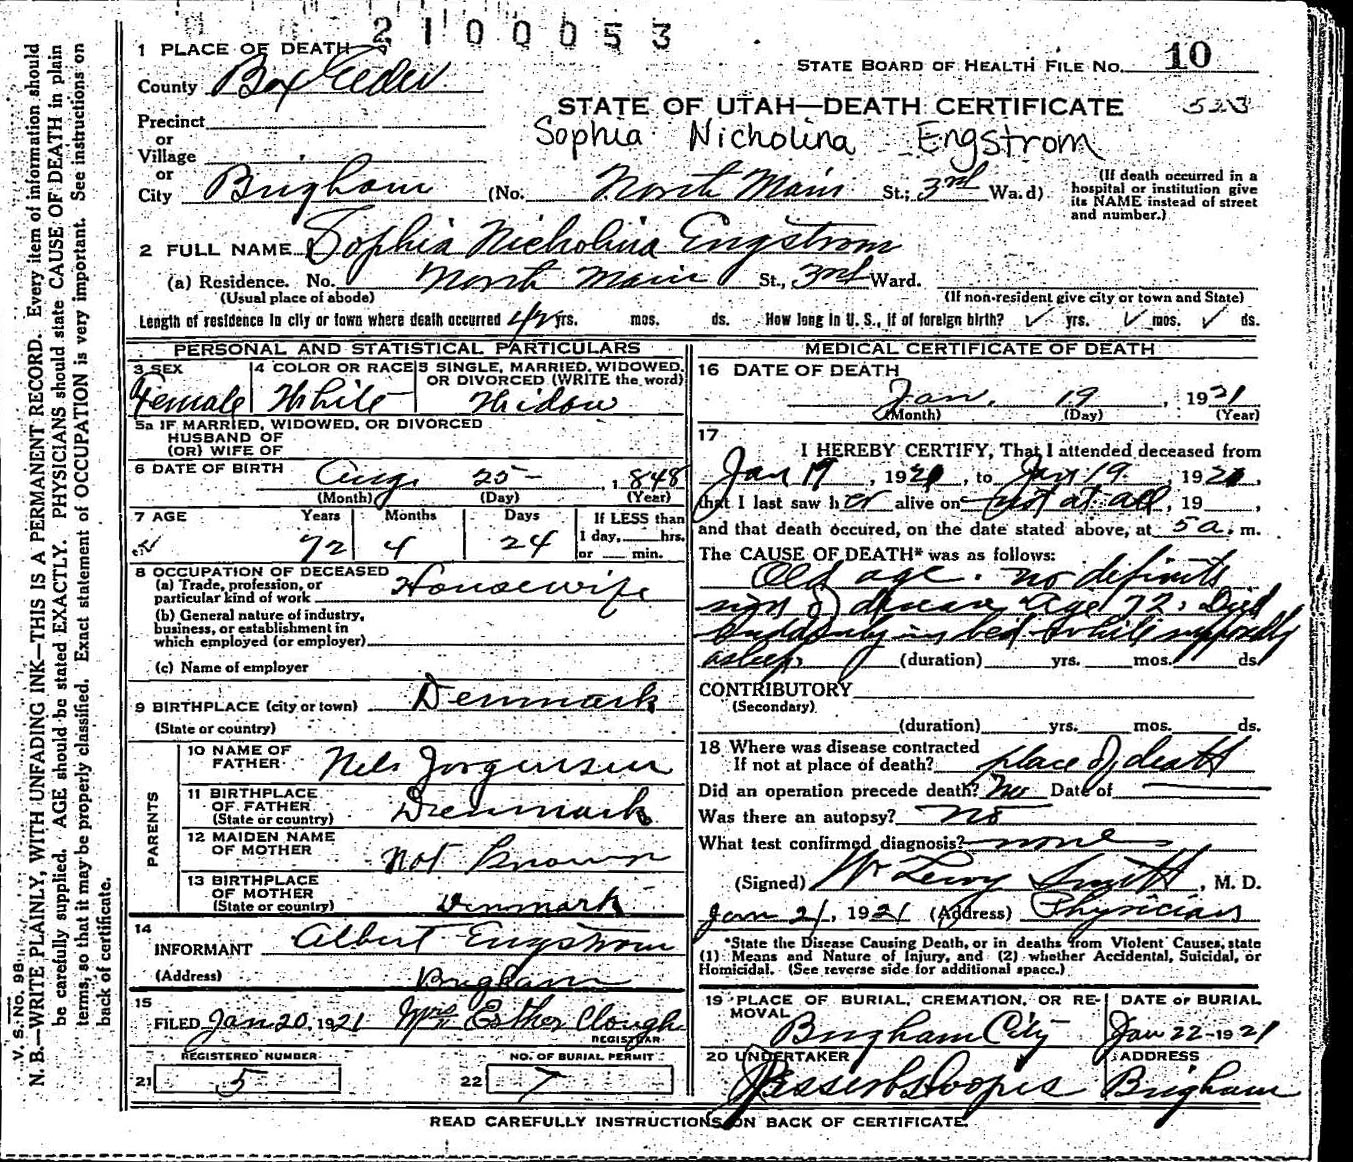 2100053
1 PLACE OF DEATH
STATE BOARD OF HEALTH FILE NO. 10
County Box Elder
STATE OF UTAH—DEATH CERTIFICATE
Precinct
Sophia Nicholina Engstrom
or
Village
or
City Brigham (No. North Main St.; 3rd Wa.d)
(If death occurred in a hospital or institution give its NAME instead of street and number.)
2 FULL NAME Sophia Nicholina Engstrom
(a) Residence. No. North Main St., 3rd Ward.
(Usual place of abode) (If non-resident give city or town and State)
Length of residence in city or town where death occurred 42 yrs. mos. ds. How long in U. S., if of foreign birth? ✓ yrs. ✓ mos. ✓ ds.
PERSONAL AND STATISTICAL PARTICULARS
3 SEX Female
4 COLOR OR RACE White
5 SINGLE, MARRIED, WIDOWED, OR DIVORCED (WRITE the word) Widow
5a IF MARRIED, WIDOWED, OR DIVORCED
HUSBAND OF
(OR) WIFE OF
6 DATE OF BIRTH Aug. 25 - , 1848
(Month) (Day) (Year)
7 AGE Years Months Days If LESS than
72 4 24 1 day, hrs.
or min.
8 OCCUPATION OF DECEASED
(a) Trade, profession, or particular kind of work Housewife
(b) General nature of industry, business, or establishment in which employed (or employer)
(c) Name of employer
9 BIRTHPLACE (city or town) Denmark
(State or country)
PARENTS
10 NAME OF FATHER Nels Jorgensen
11 BIRTHPLACE OF FATHER (State or country) Denmark
12 MAIDEN NAME OF MOTHER Not Known
13 BIRTHPLACE OF MOTHER (State or country) Denmark
14 INFORMANT Albert Engstrom
(Address) Brigham
15 FILED Jan 20, 1921 Mrs Esther Clough
REGISTRAR
REGISTERED NUMBER
21 5
NO. OF BURIAL PERMIT
22 7
MEDICAL CERTIFICATE OF DEATH
16 DATE OF DEATH
Jan. 19, 1921
(Month) (Day) (Year)
17
I HEREBY CERTIFY, That I attended deceased from
Jan 19, 1921, to Jan 19, 1921,
that I last saw her alive on not at all, 19 ,
and that death occured, on the date stated above, at 5 a. m.
The CAUSE OF DEATH* was as follows:
Old age. no definite
sign of disease. Age 72. Died
suddenly in bed while supposedly
asleep. (duration) yrs. mos. ds.
CONTRIBUTORY
(Secondary)
(duration) yrs. mos. ds.
18 Where was disease contracted
If not at place of death? place of death
Did an operation precede death? No Date of
Was there an autopsy? No
What test confirmed diagnosis? none
(Signed) Smith, M. D.
Jan 21, 1921 (Address) Physician
*State the Disease Causing Death, or in deaths from Violent Causes, state
(1) Means and Nature of Injury, and (2) whether Accidental, Suicidal, or
Homicidal. (See reverse side for additional space.)
19 PLACE OF BURIAL, CREMATION, OR REMOVAL Brigham City
DATE OF BURIAL Jan 22 - 1921
20 UNDERTAKER
ADDRESS Brigham
READ CAREFULLY INSTRUCTIONS ON BACK OF CERTIFICATE.
V. S. No. 98
N. B.—WRITE PLAINLY, WITH UNFADING INK—THIS IS A PERMANENT RECORD. Every item of information should
be carefully supplied. AGE should be stated EXACTLY. PHYSICIANS should state CAUSE OF DEATH in plain
terms, so that it may be properly classified. Exact statement of OCCUPATION is very important. See instructions on
back of certificate.